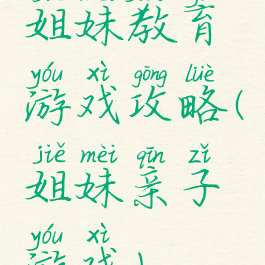 姐妹教育
yóu xì gōng lüè
游戏攻略(
jiě mèi qīn zǐ
姐妹亲子
yóu xì
游戏)